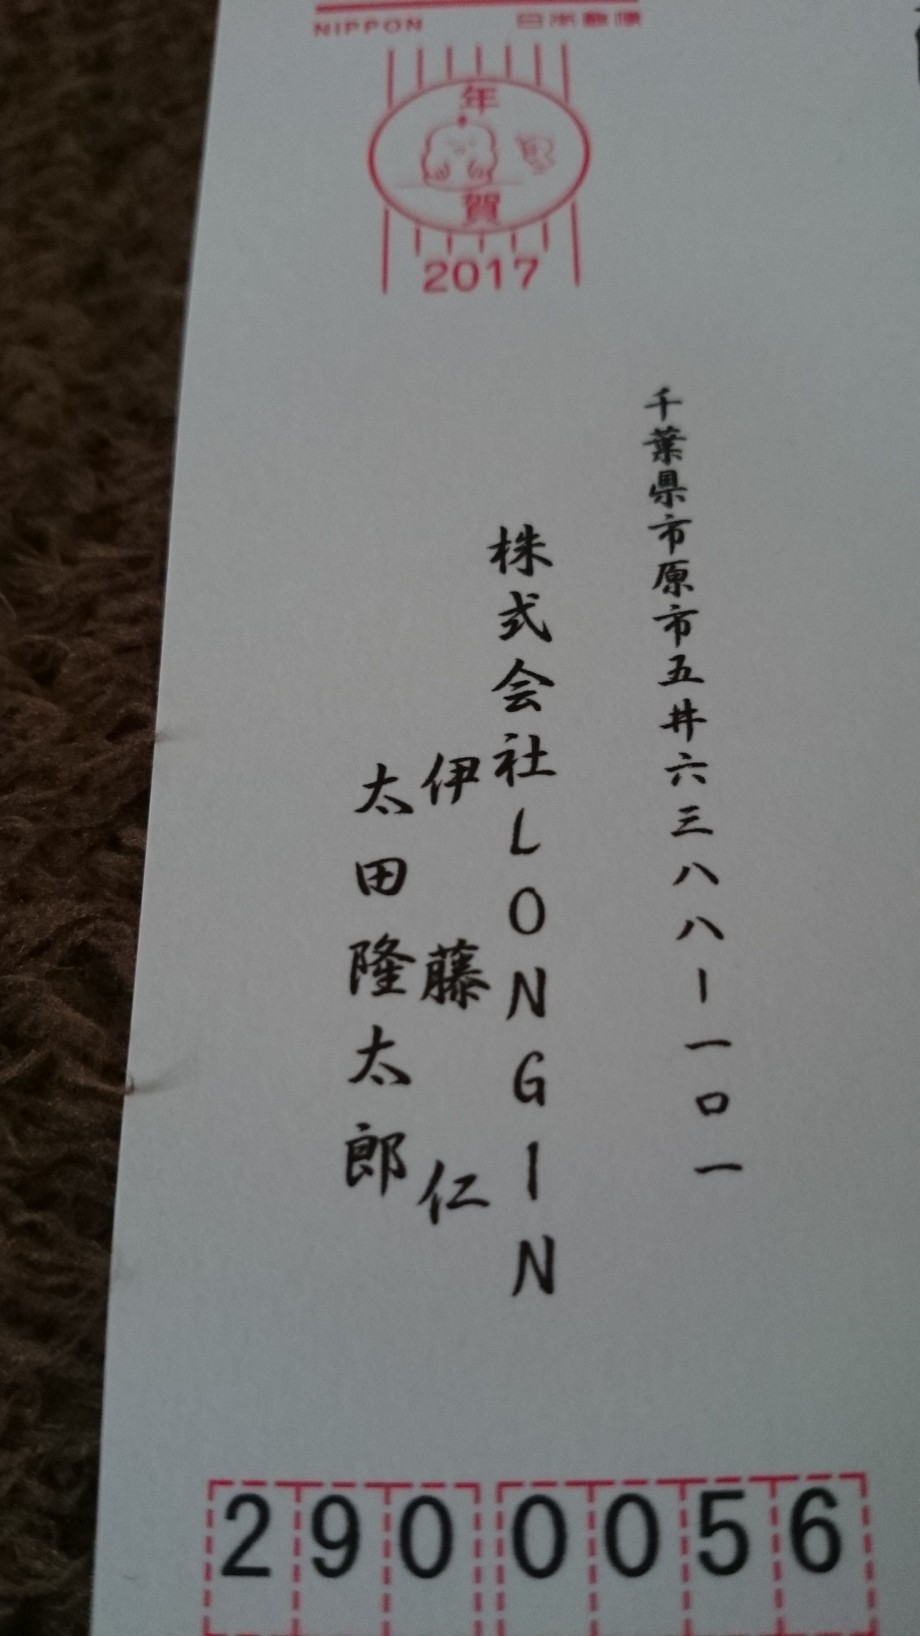 NIPPON 日本郵便
年
賀
2017
千葉県市原市五井六三八八ー一〇一
株式会社LONGIN
伊藤仁
太田隆太郎
2900056